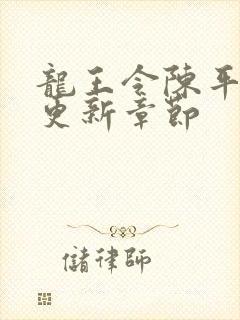 龍王令陳平
更新章節
儲律師